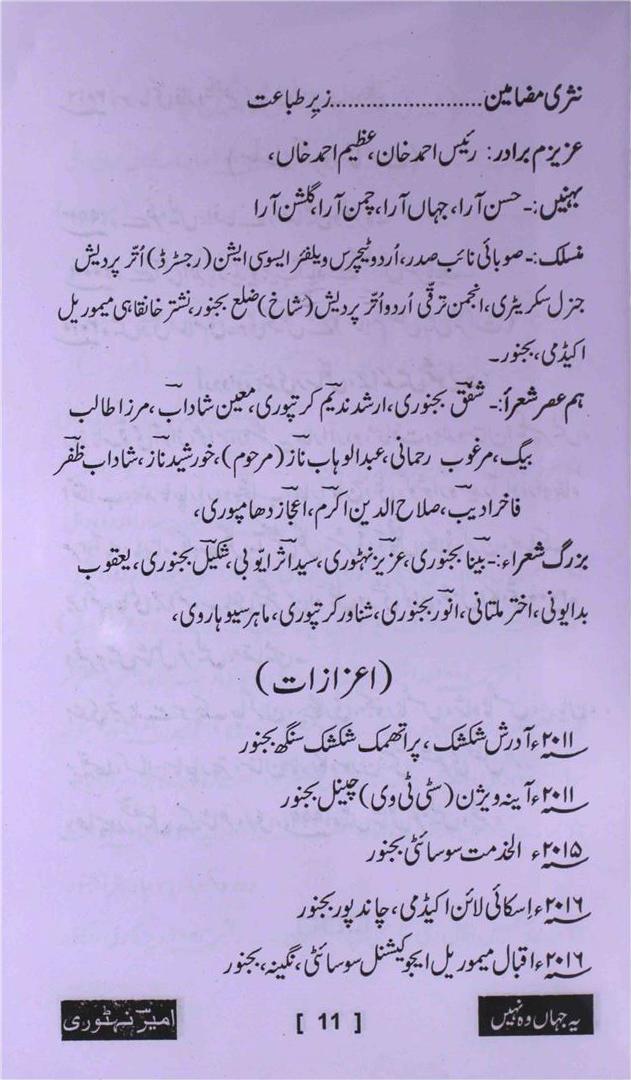 نثری مضامین........................زیرِ طباعت
عزیزم برادر: رئیس احمد خان، عظیم احمد خاں،
بہنیں:۔ حسن آرا، جہاں آرا، چمن آرا، گلشن آرا
منسلک:۔ صوبائی نائب صدر، اُردو ٹیچرس ویلفئر ایسوسی ایشن (رجسٹرڈ) اُتّر پردیش
جنرل سکریٹری، انجمن ترقّی اُردو اُتّر پردیش (شاخ) ضلع بجنور، نشتر خانقاہی میموریل
اکیڈمی، بجنور۔
ہم عصر شعرأ:۔ شفقؔ بجنوری، ارشد ندیمؔ کرتپوری، معین شادابؔ، مرزا طالب
بیگ، مرغوب رحمانی، عبدالوہاب نازؔ (مرحوم)، خورشید نازؔ، شاداب ظفرؔ
فاخر ادیبؔ، صلاح الدین اکرمؔ، اعجازؔ دھامپوری،
بزرگ شعراء:۔ بیناؔ بجنوری، عزیزؔ نہٹوری، سید اثرؔ ایوّبی، شکیلؔ بجنوری، یعقوب
بدایونی، اختر ملتانی، انورؔ بجنوری، شناور کرتپوری، ماہر سیوہاروی،
(اعزازات)
۲۰۱۱ء آدرش شکشک، پراتھمک شکشک سنگھ بجنور
۲۰۱۱ء آینہ ویژن (سٹی ٹی وی) چینل بجنور
۲۰۱۵ء الخدمت سوسائٹی بجنور
۲۰۱۶ء اِسکائی لائن اکیڈمی، چاند پور بجنور
۲۰۱۶ء اقبال میموریل ایجوکیشنل سوسائٹی، نگینہ، بجنور
یہ جہاں وہ نہیں [ 11 ] امیرؔ نہٹوری